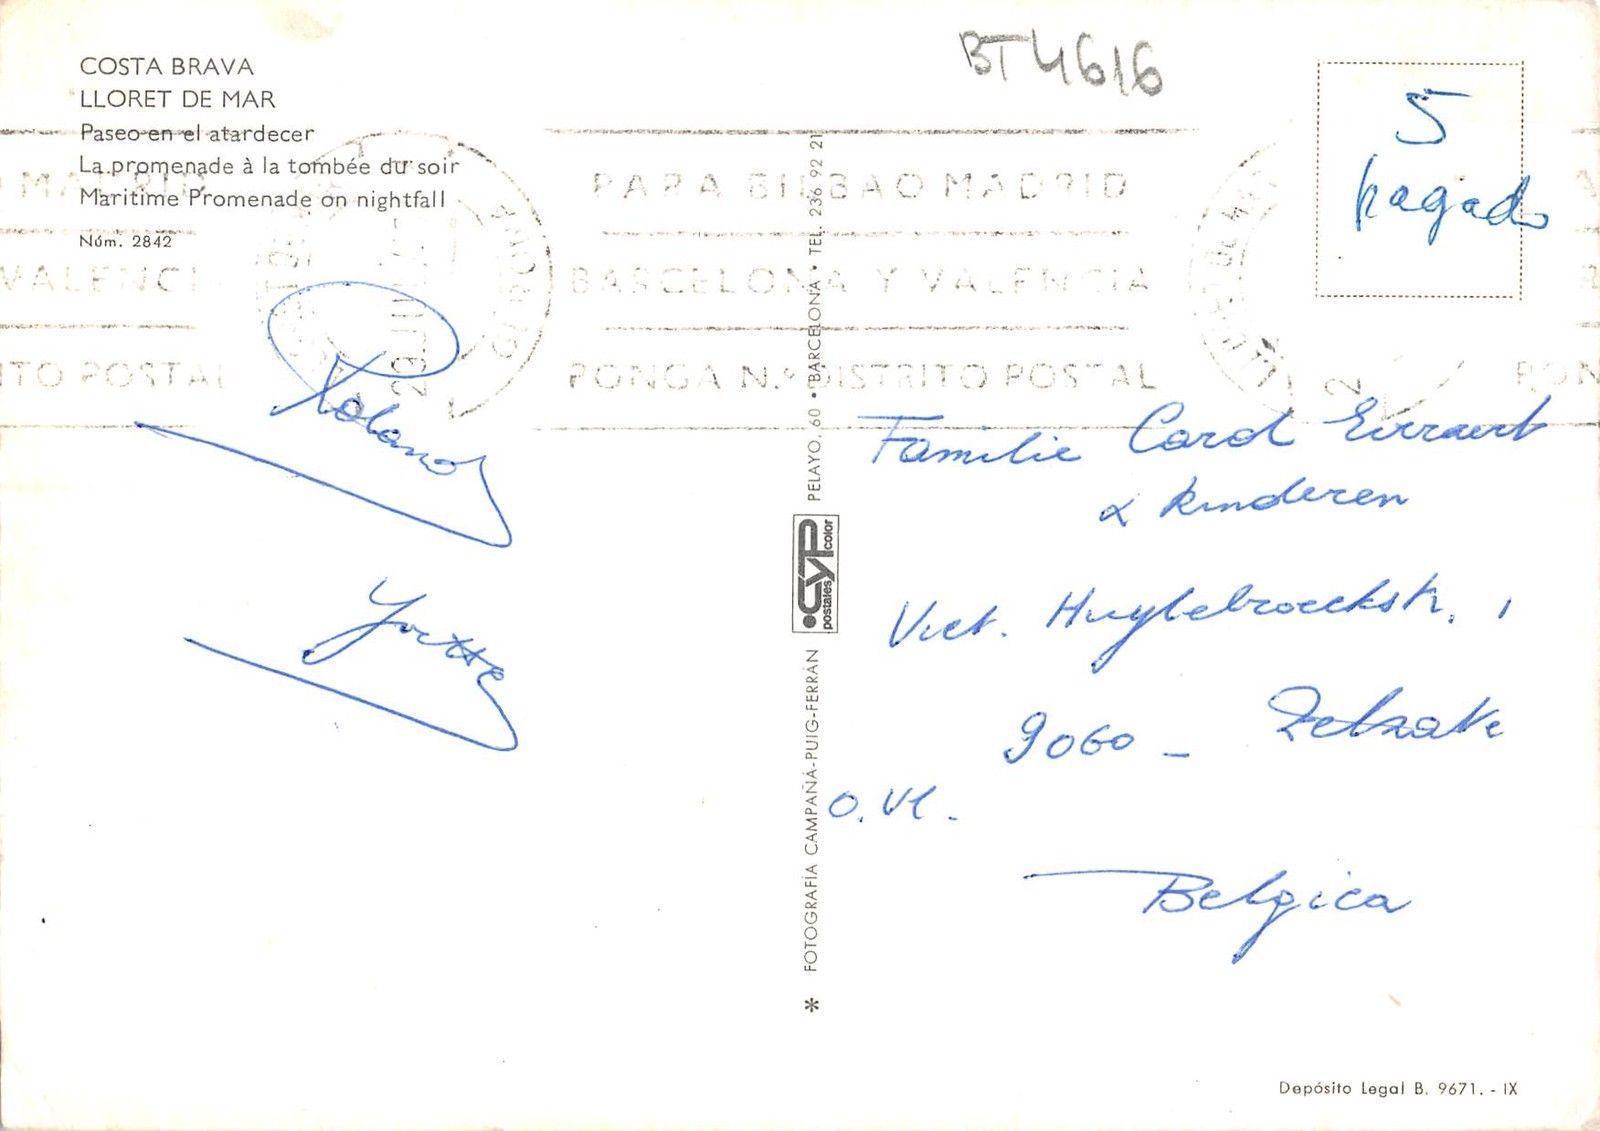 COSTA BRAVA
LLORET DE MAR
Paseo en el atardecer
La promenade à la tombée du soir
Maritime Promenade on nightfall
Núm. 2842
BT4616
5
pagado
PARA BILBAO MADRID
BARCELONA Y VALENCIA
PONGA N.º DISTRITO POSTAL
Roland
Yvette
* FOTOGRAFÍA CAMPAÑÁ-PUIG-FERRÁN
CYP
postales color
PELAYO, 60 • BARCELONA • TEL. 236 92 21
Familie Carol
& Kinderen
Vict. Huylebroeckstr. 1
9060 - Zelzate
O. Vl.
Belgica
Depósito Legal B. 9671. - IX